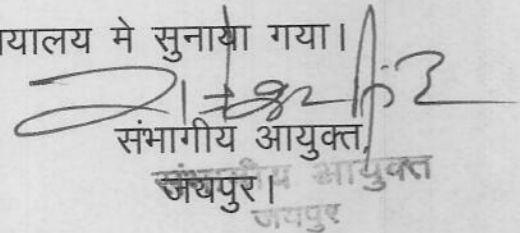 यालय मे सुनाया गया।
संभागीय आयुक्त,
जयपुर।
संभागीय आयुक्त
जयपुर